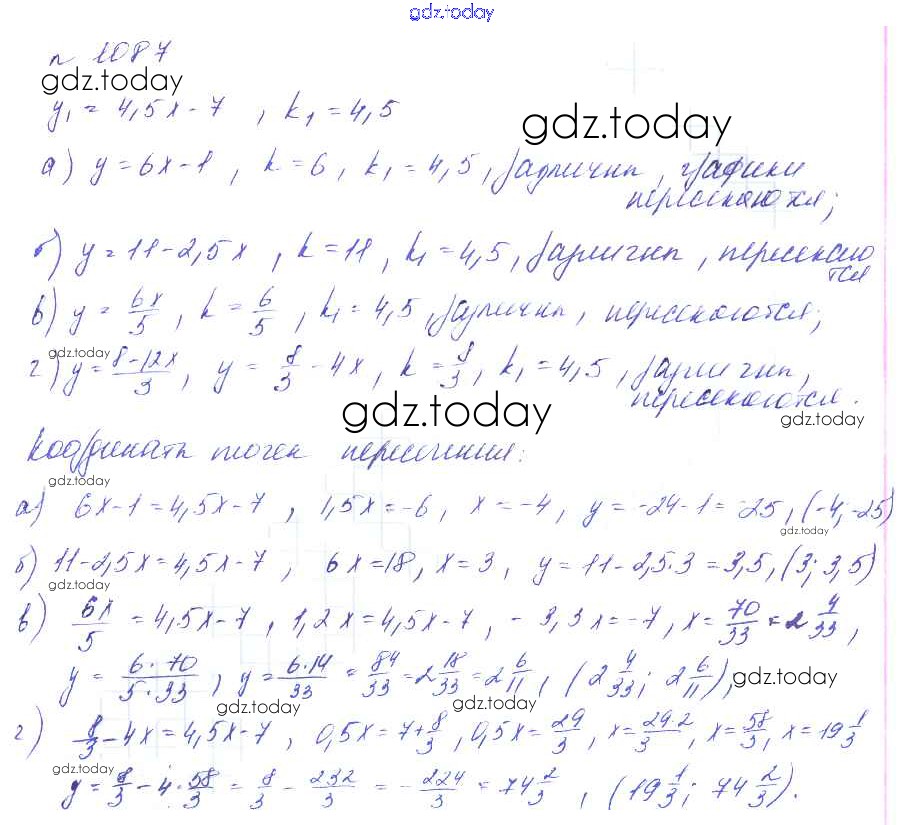 gdz.today
п 1087
gdz.today
y₁ = 4,5x - 7 , k₁ = 4,5
gdz.today
а) y = 6x - 1 , k = 6 , k₁ = 4,5 , различны , графики
пересекаются;
б) y = 11 - 2,5x , k = 11 , k₁ = 4,5 , различны , пересекаю
тся
в) y = 6x/5 , k = 6/5 , k₁ = 4,5 , различны , пересекаются;
gdz.today
г) y = 8-12x/3 , y = 8/3 - 4x , k = 8/3 , k₁ = 4,5 , различны ,
пересекаются.
gdz.today
gdz.today
Координаты точек пересечения:
gdz.today
а) 6x - 1 = 4,5x - 7 , 1,5x = -6 , x = -4 , y = -24 - 1 = -25 , (-4; -25)
gdz.today
б) 11 - 2,5x = 4,5x - 7 , 6x = 18 , x = 3 , y = 11 - 2,5·3 = 3,5 , (3; 3,5)
gdz.today
в) 6x/5 = 4,5x - 7 , 1,2x = 4,5x - 7 , - 3,3x = -7 , x = 70/33 = 2 4/33 ,
y = 6·70/5·33 , y = 6·14/33 = 84/33 = 2 18/33 = 2 6/11 , (2 4/33; 2 6/11),
gdz.today
gdz.today
gdz.today
г) 8/3 - 4x = 4,5x - 7 , 0,5x = 7 + 8/3 , 0,5x = 29/3 , x = 29·2/3 , x = 58/3 , x = 19 1/3
gdz.today
y = 8/3 - 4·58/3 = 8/3 - 232/3 = - 224/3 = 74 2/3 , (19 1/3; 74 2/3).
gdz.today